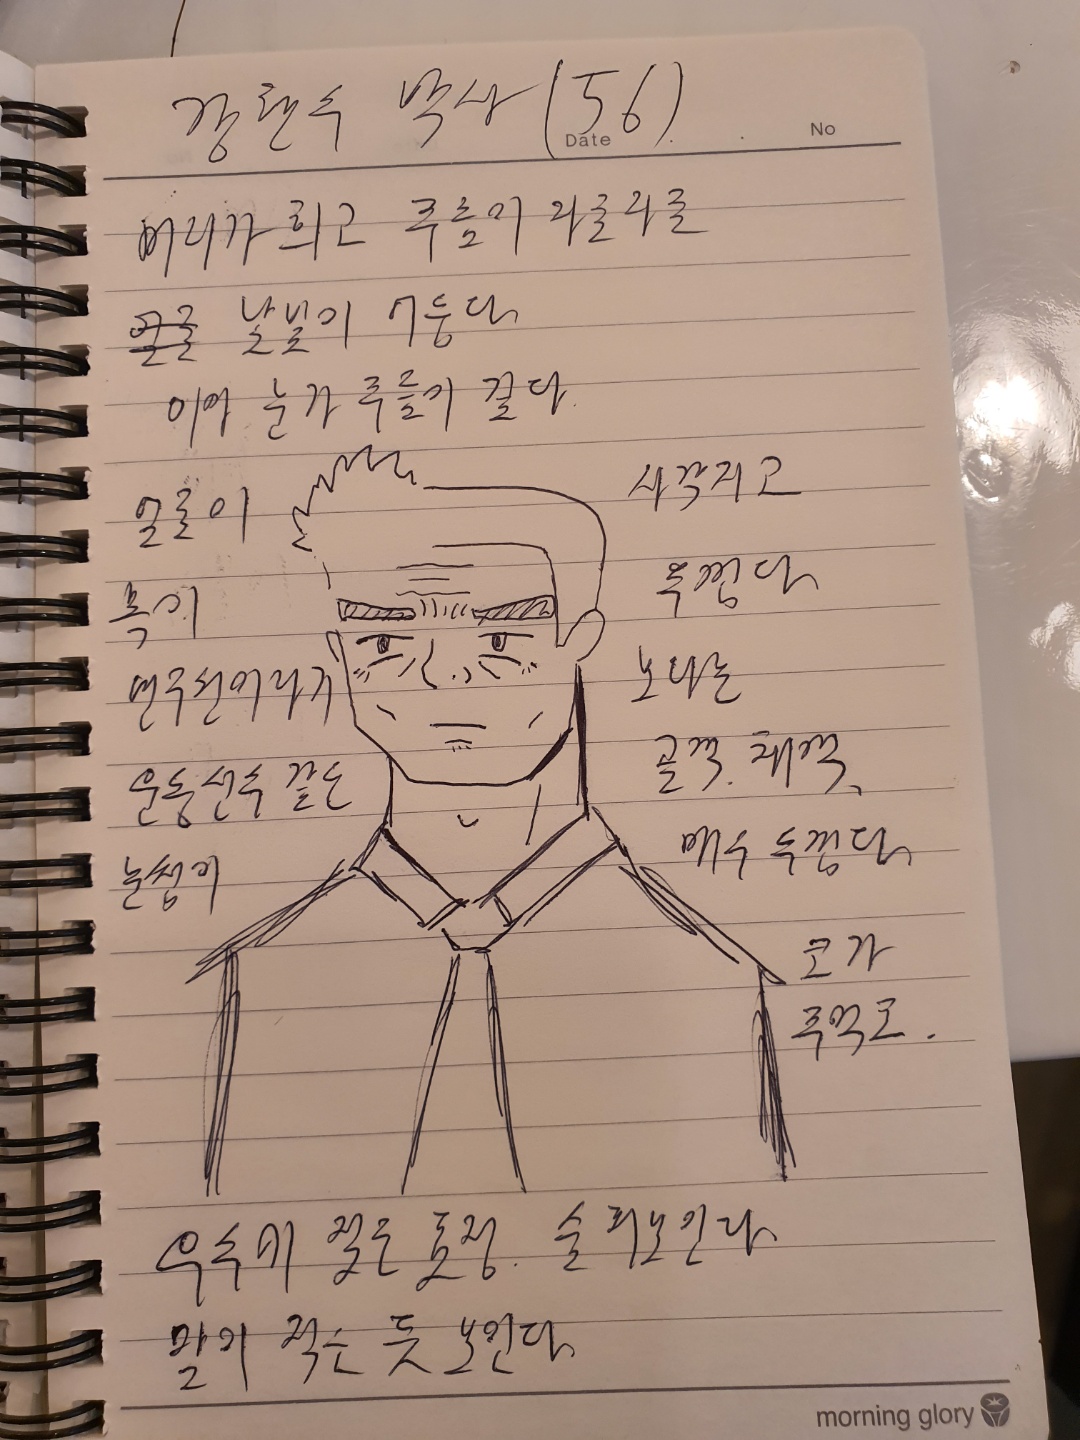 박사 (56)
Date
No
머리가 희고 주름이 자글자글
눈빛이 어둡다
이마 눈가 주름이 깊다.
얼굴이
사각지고
목이
두껍다
연구원이라기
보다는
운동선수 같은
골격. 체격.
인상이
매우 두껍다
코가
주먹코.
우수에 젖은 표정. 슬퍼보인다
말이 적은 듯 보인다
morning glory